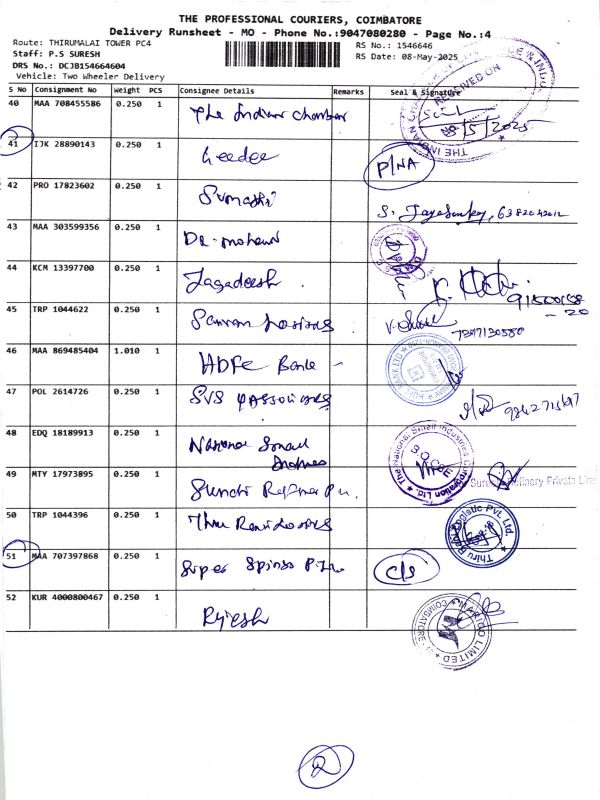 THE PROFESSIONAL COURIERS, COIMBATORE
Delivery Runsheet - MO - Phone No.:9047080280 - Page No.:4
Route: THIRUMALAI TOWER PC4
Staff: P.S SURESH
DRS No.: DCJB154664604
Vehicle: Two Wheeler Delivery
RS No.: 1546646
RS Date: 08-May-2025
S No Consignment No Weight PCS Consignee Details Remarks Seal & Signature
40 MAA 708455586 0.250 1 The Indian Chamber
41 IJK 28890143 0.250 1 Geedee P/NA
42 PRO 17823602 0.250 1 Sumathi S. Jayasankar, 6382042012
43 MAA 303599356 0.250 1 DR. mohan
44 KCM 13397700 0.250 1 Jagadeesh
45 TRP 1044622 0.250 1
46 MAA 869485404 1.010 1 HDFC Bank -
47 POL 2614726 0.250 1 SVS & Associates
48 EDQ 18189913 0.250 1 National Small
The National Small Industries Corporation Ltd.
49 MTY 17973895 0.250 1
Private Lim
50 TRP 1044396 0.250 1 Thiru
Logistic Pvt. Ltd.
51 MAA 707397868 0.250 1 Super Spinns P. Ltd C/S
52 KUR 4000800467 0.250 1 Rajesh
MARICO LIMITED COIMBATORE
2